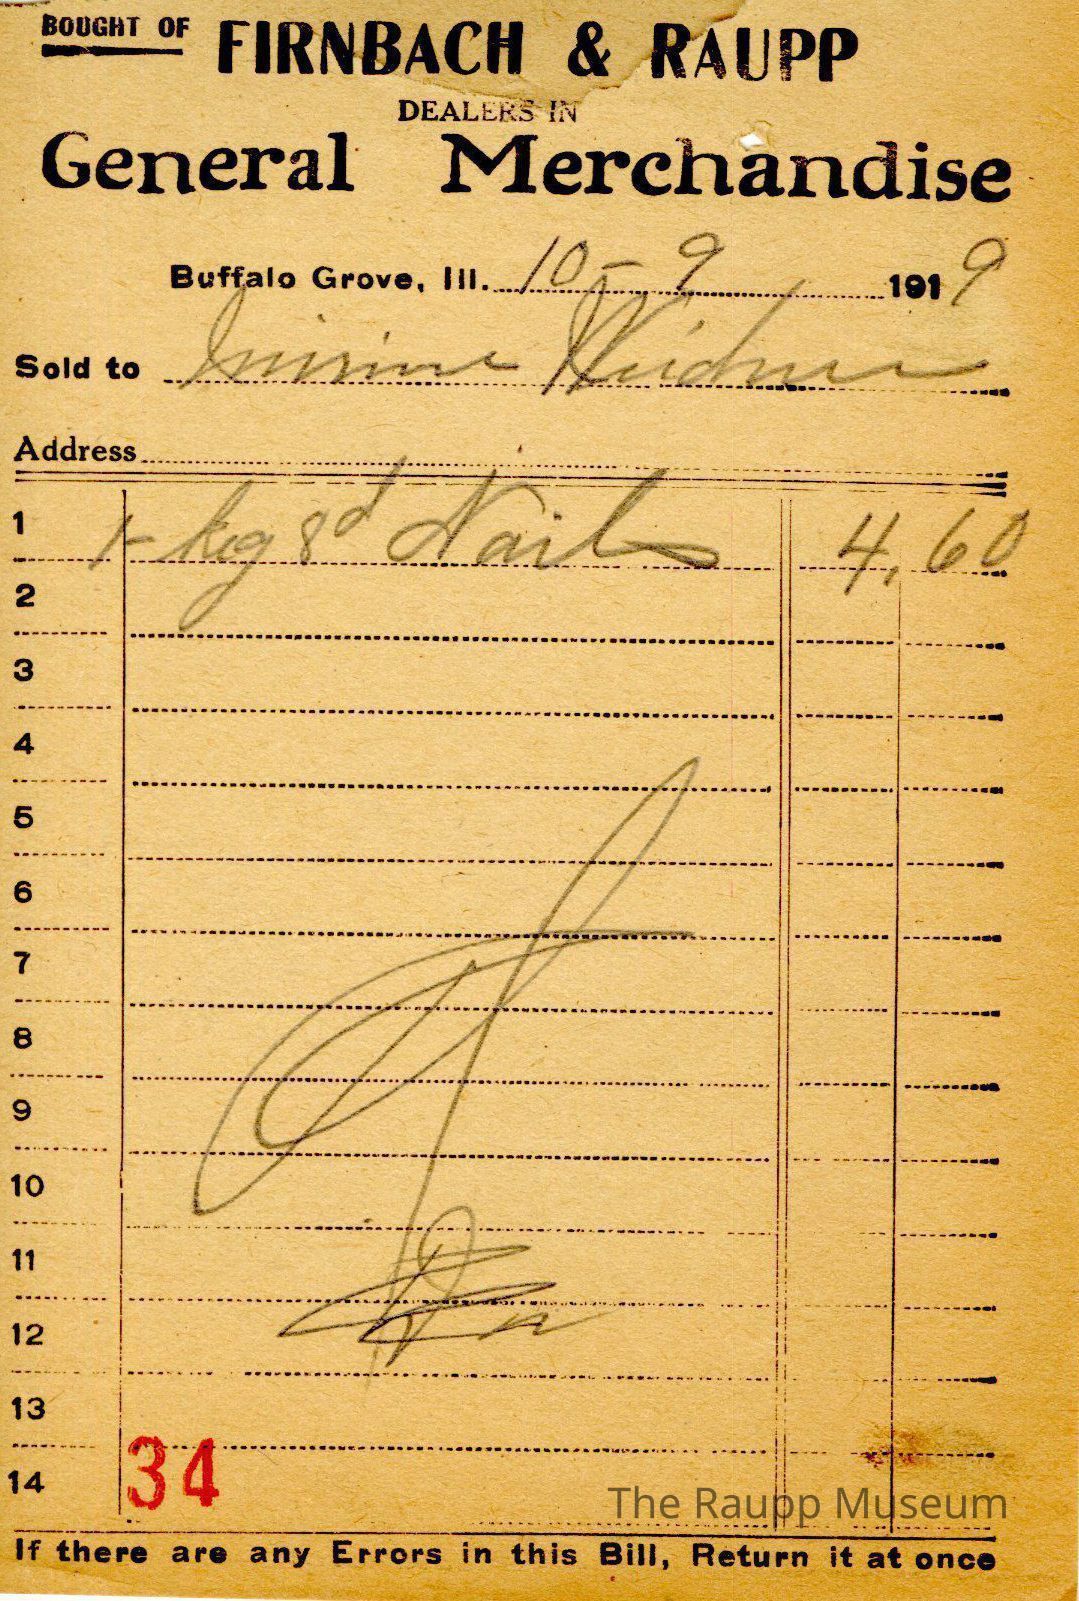 BOUGHT OF FIRNBACH & RAUPP
DEALERS IN
General Merchandise
Buffalo Grove, Ill. 10-9 1919
Sold to
Address
1 1- keg 8d Nails 4.60
2
3
4
5
6
7
8
9
10
11
12
13
14 34
The Raupp Museum
If there are any Errors in this Bill, Return it at once